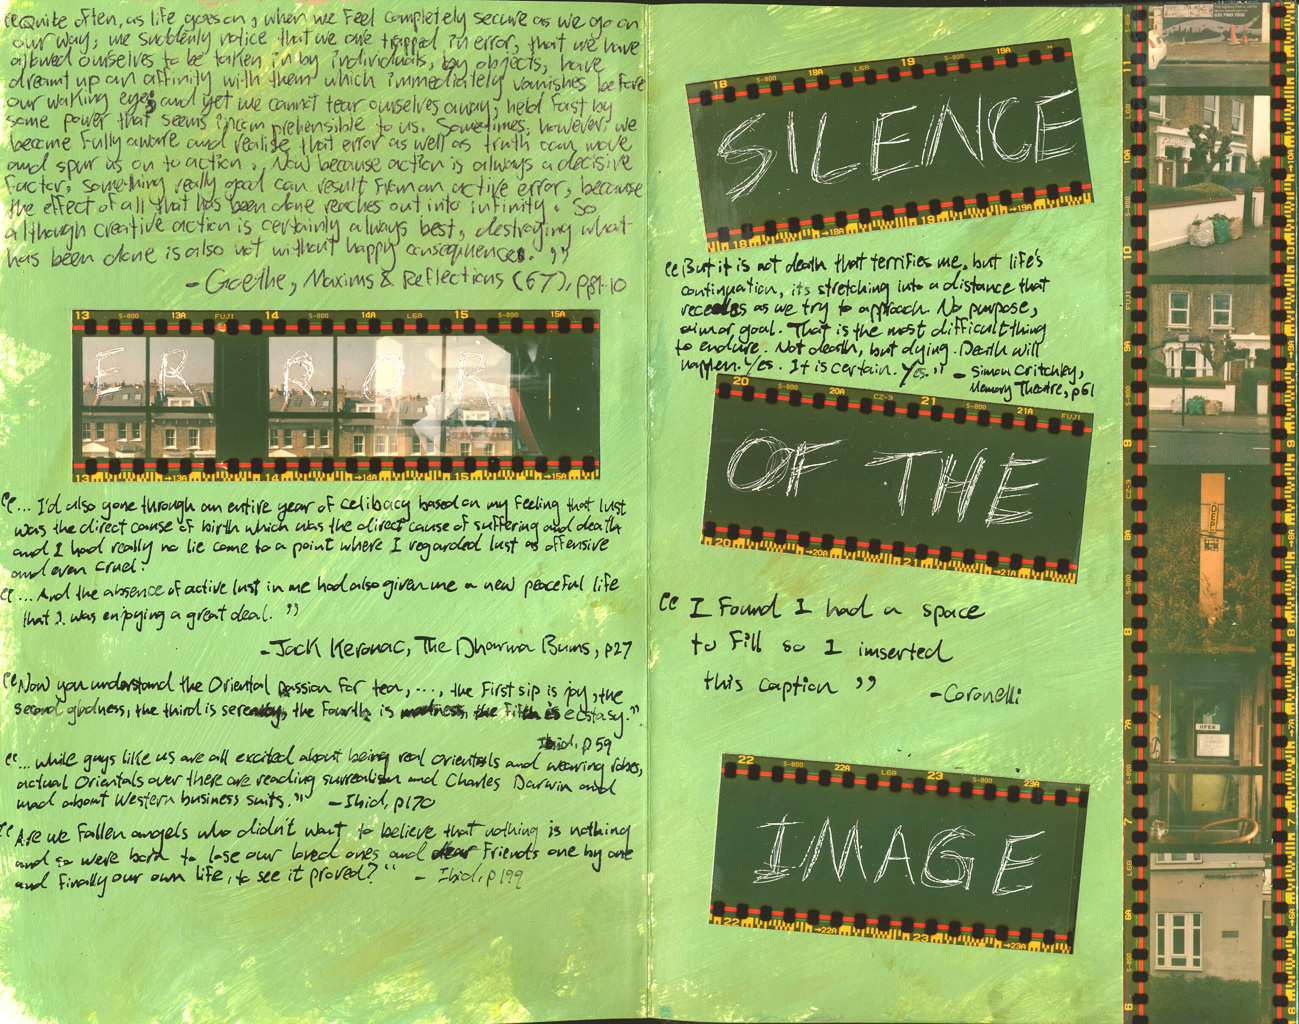 “Quite often, as life goes on, when we feel completely secure as we go on
our way, we suddenly notice that we are trapped in error, that we have
allowed ourselves to be taken in by individuals, by objects, have
dreamt up an affinity with them which immediately vanishes before
our waking eyes; and yet we cannot tear ourselves away, held fast by
some power that seems incomprehensible to us. Sometimes, however, we
become fully aware and realise that error as well as truth can move
and spur us on to action. Now because action is always a decisive
factor, something really good can result from an active error, because
the effect of all that has been done reaches out into infinity. So
although creative action is certainly always best, destroying what
has been done is also not without happy consequences.”
- Goethe, Maxims & Reflections (67), p9-10
13 S-800 13A FUJI 14 S-800 14A LGB 15 S-800 15A
ERROR
13 →13A 14 →14A 15 →15A
“... I'd also gone through an entire year of celibacy based on my feeling that lust
was the direct cause of birth which was the direct cause of suffering and death
and I had really no lie come to a point where I regarded lust as offensive
and even cruel.
“... And the absence of active lust in me had also given me a new peaceful life
that I was enjoying a great deal.”
- Jack Kerouac, The Dharma Bums, p27
“Now you understand the Oriental passion for tea, ..., the first sip is joy, the
second gladness, the third is serenity, the fourth is madness, the fifth is ecstasy.”
Ibid, p59
“... while guys like us are all excited about being real Orientals and wearing robes,
actual Orientals over there are reading surrealism and Charles Darwin and
mad about Western business suits.” - Ibid, p170
“Are we fallen angels who didn't want to believe that nothing is nothing
and so were born to lose our loved ones and dear friends one by one
and finally our own life, to see it proved?“ - Ibid, p199
18 S-800 18A LGB 19 S-800 19A
SILENCE
18 →18A 19 →19A
“But it is not death that terrifies me, but life's
continuation, its stretching into a distance that
recedes as we try to approach. No purpose,
aim or goal. That is the most difficult thing
to endure. Not death, but dying. Death will
happen. Yes. It is certain. Yes.” - Simon Critchley,
Memory Theatre, p61
20 S-800 20A CZ-3 21 S-800 21A FUJI
OF THE
20 →20A 21 →21A
“I found I had a space
to fill so I inserted
this caption” - Coronelli
22 S-800 22A LGB 23 S-800 23A
IMAGE
22 →22A 23 →23A
11
LGB
10A
S-800
10
FUJI
9A
S-800
9
CZ-3
8A
S-800
8
7A
S-800
7
LGB
6A
S-800
6
020 7989 7000
OPEN